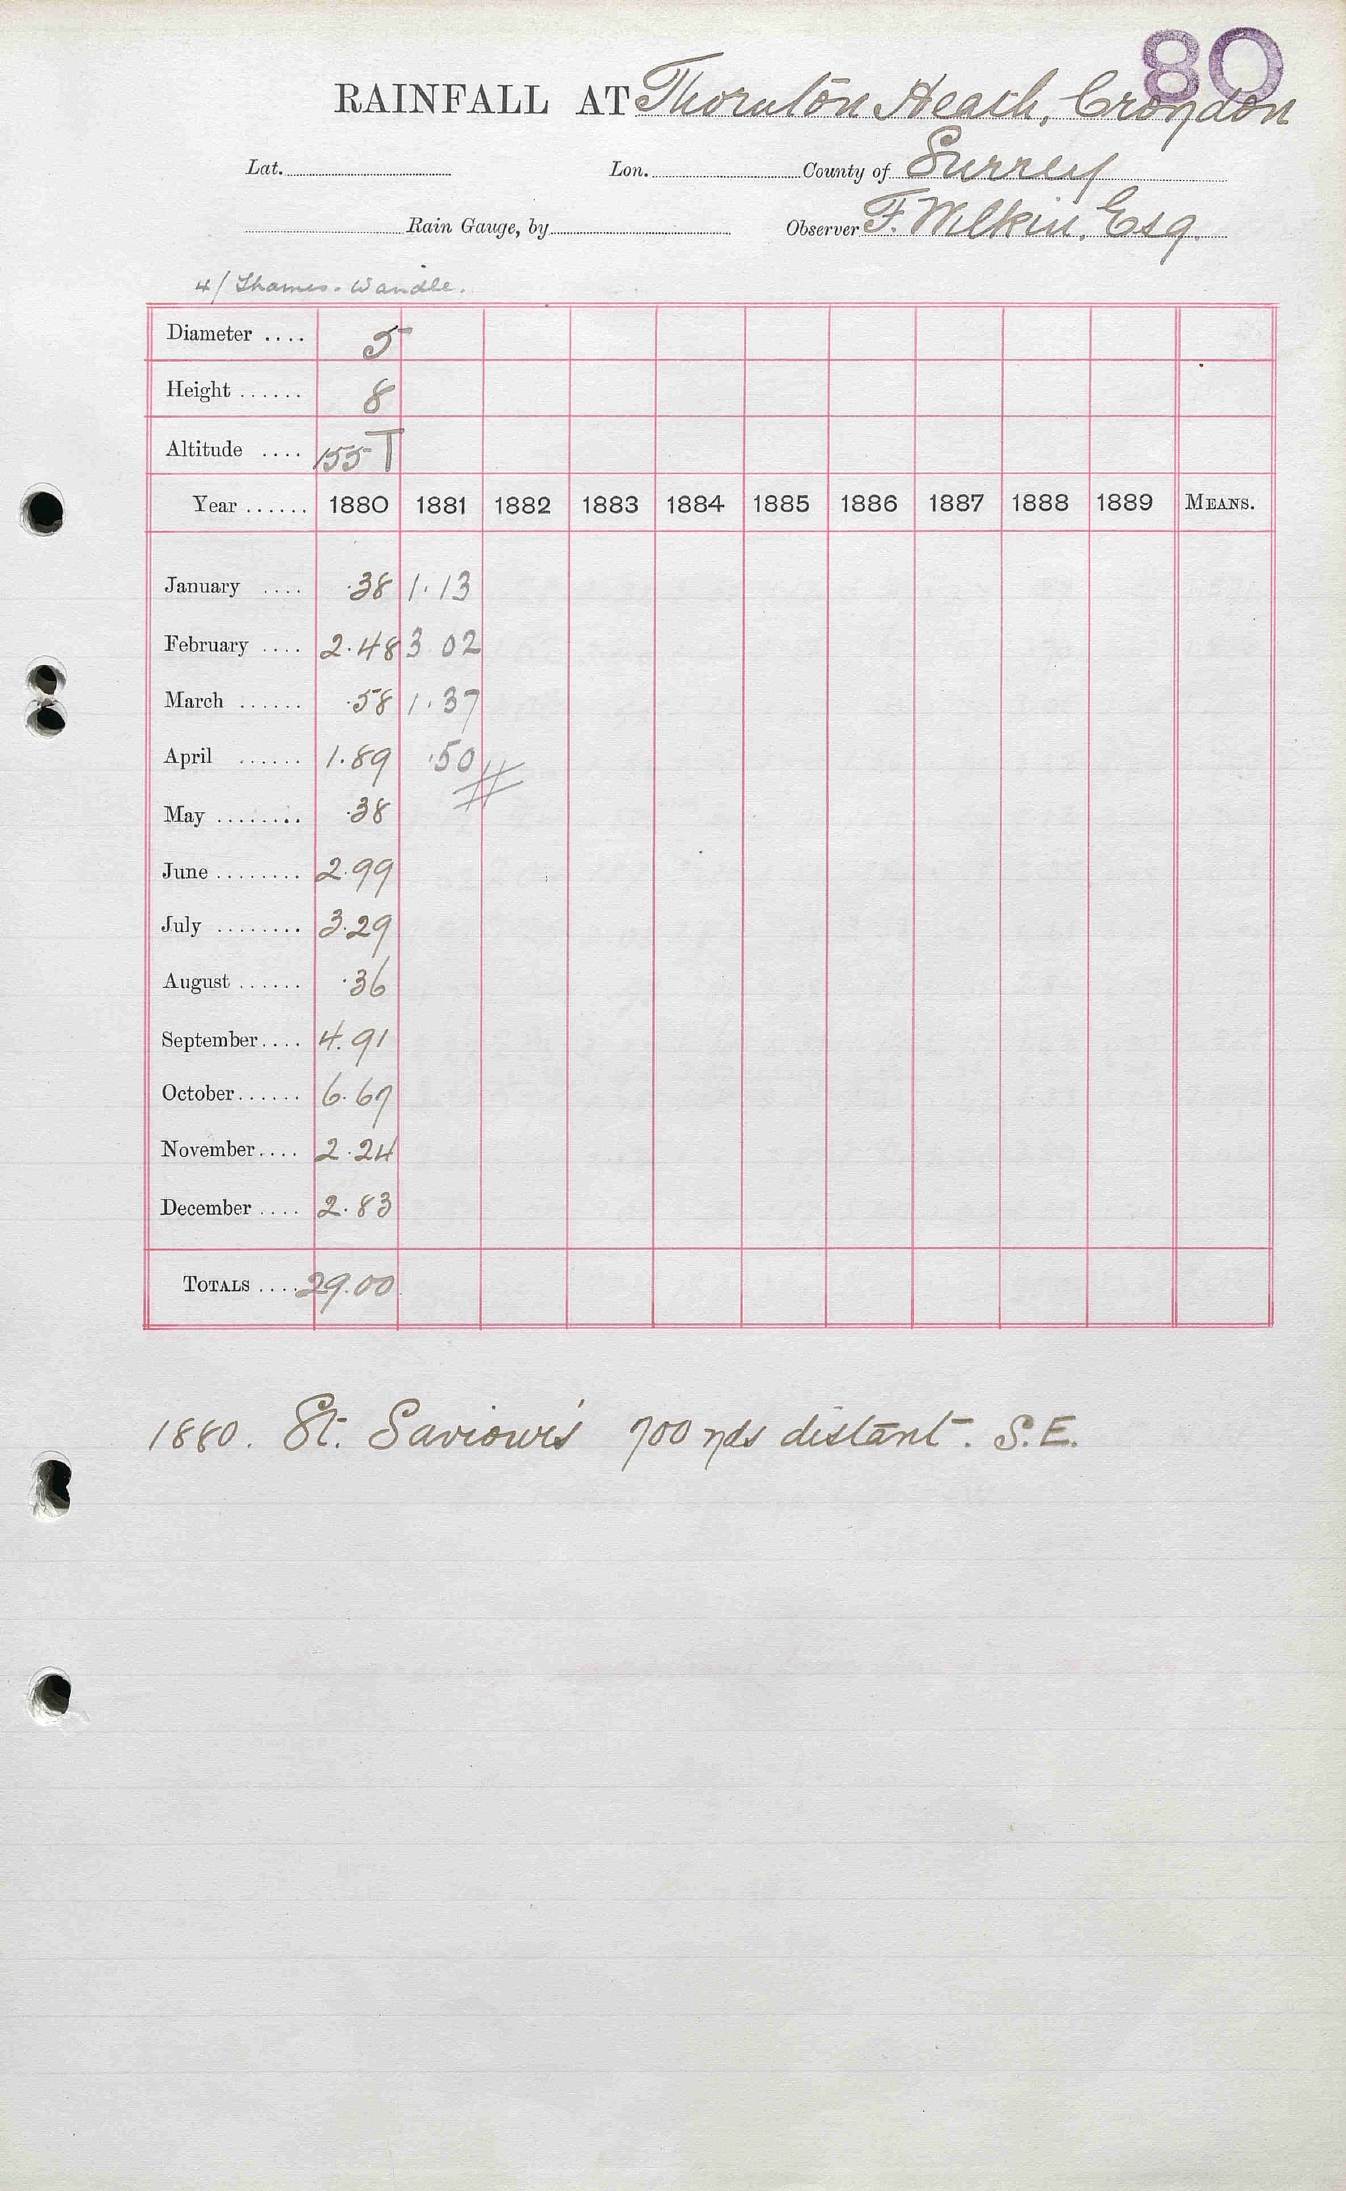 80
RAINFALL AT Thornton Heath, Croydon
Lat. Lon. County of Surrey
Rain Gauge, by Observer F. Wilkin, Esq.
4/ Thames. Wandle.
Diameter .... 5
Height ...... 8
Altitude .... 155 T
Year ...... 1880 1881 1882 1883 1884 1885 1886 1887 1888 1889 MEANS.
January .... .38 1.13
February .... 2.48 3 02
March ...... .58 1.37
April ...... 1.89 .50
May ........ .38
June ........ 2.99
July ........ 3.29
August ...... .36
September .... 4.91
October ...... 6.67
November .... 2.24
December .... 2.83
TOTALS .... 29.00
1880. St. Saviour's 700 yds distant. S.E.